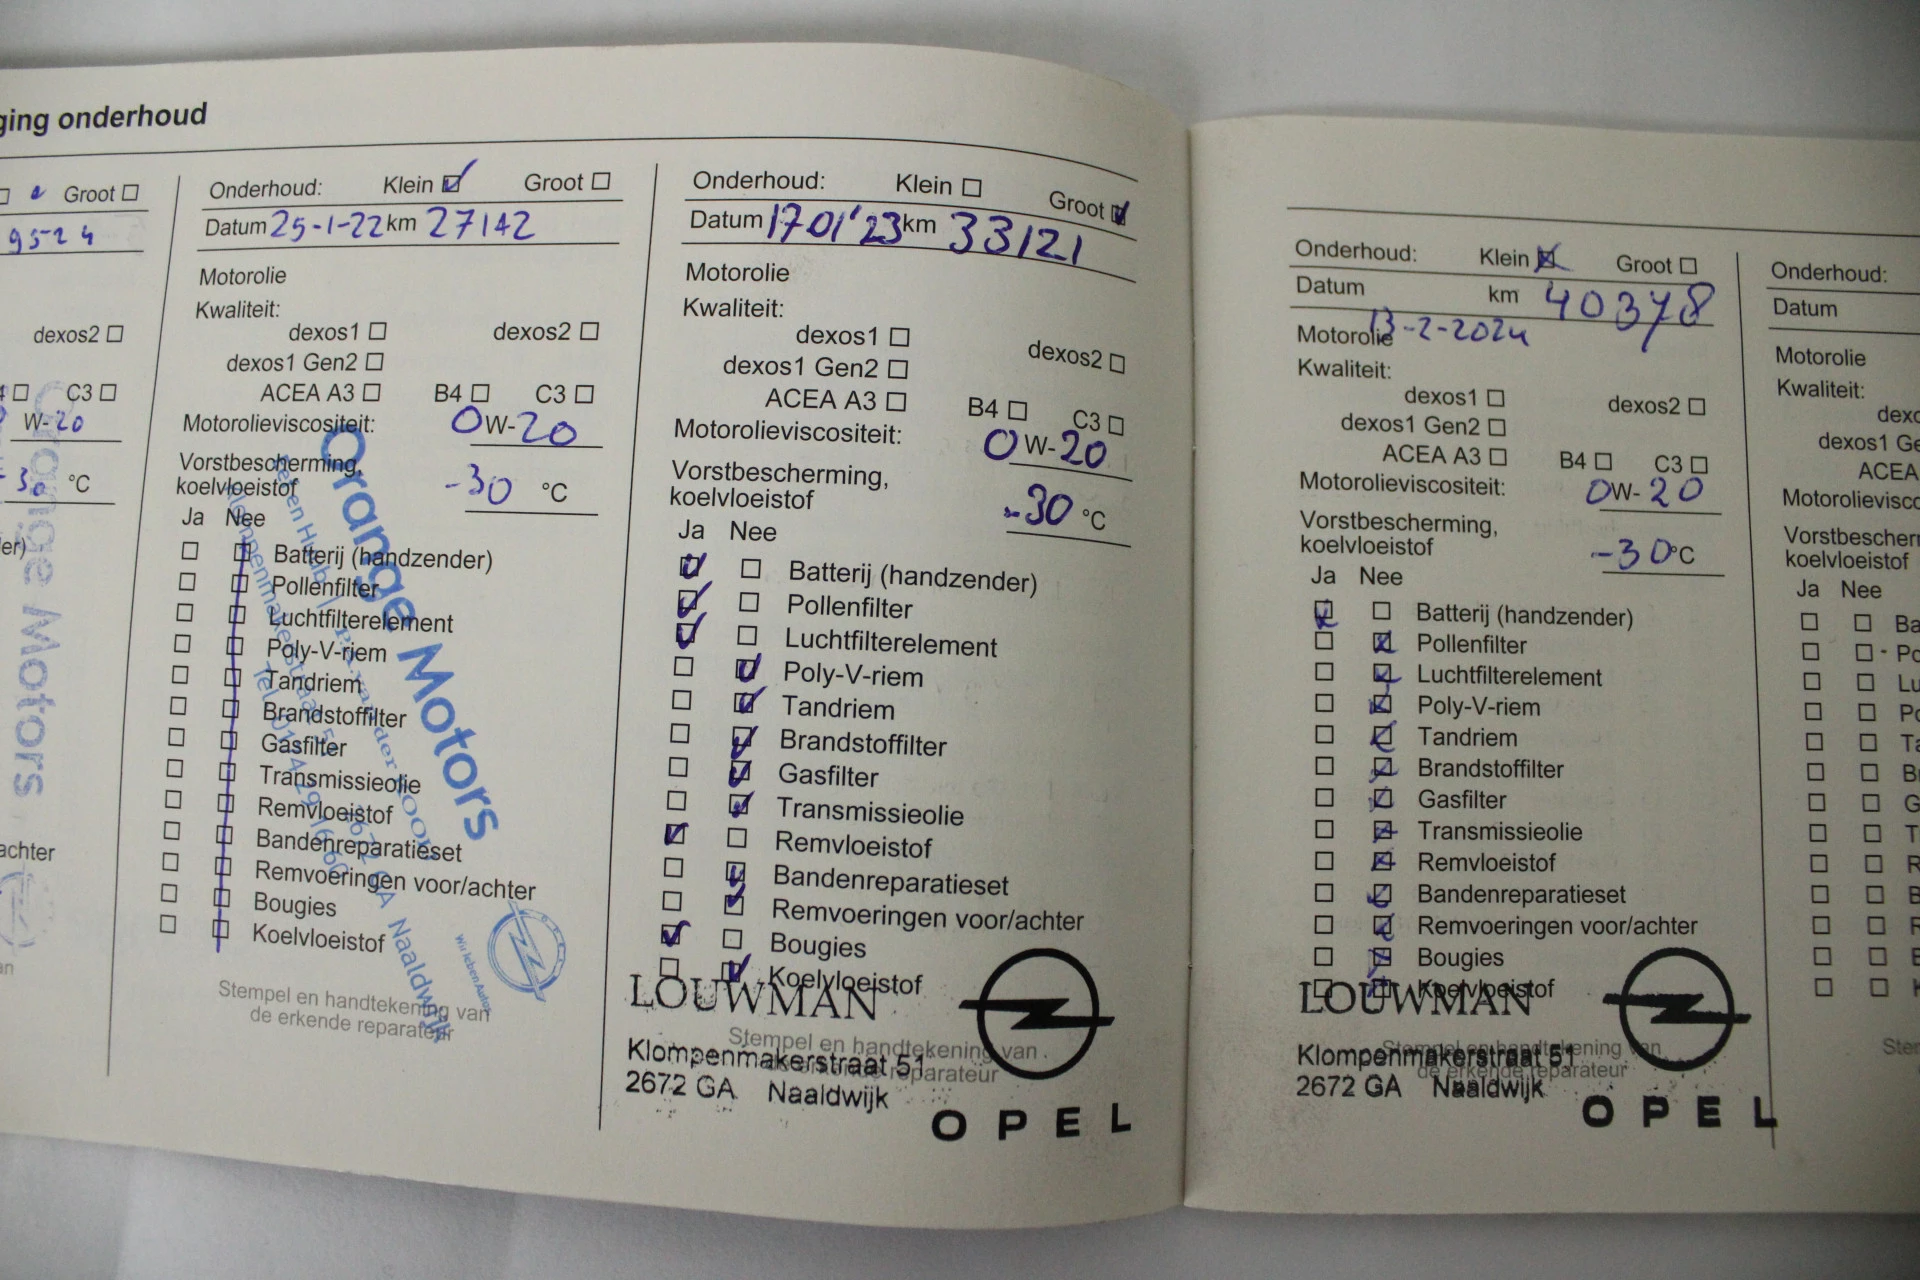 ging onderhoud
Groot
9524
dexos2
C3
W-20
-30 °C
Orange Motors
achter
Onderhoud: Klein Groot
Datum 25-1-22 km 27142
Motorolie
Kwaliteit:
dexos1 dexos2
dexos1 Gen2
ACEA A3 B4 C3
Motorolieviscositeit: 0W-20
Vorstbescherming,
koelvloeistof -30 °C
Ja Nee
Batterij (handzender)
Pollenfilter
Luchtfilterelement
Poly-V-riem
Tandriem
Brandstoffilter
Gasfilter
Transmissieolie
Remvloeistof
Bandenreparatieset
Remvoeringen voor/achter
Bougies
Koelvloeistof
Stempel en handtekening van
de erkende reparateur
Orange Motors
Naaldwijk
Wir leben Autos
Onderhoud: Klein Groot
Datum 17-01'23 km 33121
Motorolie
Kwaliteit:
dexos1 dexos2
dexos1 Gen2
ACEA A3 B4 C3
Motorolieviscositeit: 0W-20
Vorstbescherming,
koelvloeistof -30 °C
Ja Nee
Batterij (handzender)
Pollenfilter
Luchtfilterelement
Poly-V-riem
Tandriem
Brandstoffilter
Gasfilter
Transmissieolie
Remvloeistof
Bandenreparatieset
Remvoeringen voor/achter
Bougies
Koelvloeistof
LOUWMAN
Stempel en handtekening van
de erkende reparateur
Klompenmakerstraat 51
2672 GA Naaldwijk
OPEL
Onderhoud: Klein Groot
Datum km 40378
13-2-2024
Motorolie
Kwaliteit:
dexos1 dexos2
dexos1 Gen2
ACEA A3 B4 C3
Motorolieviscositeit: 0W-20
Vorstbescherming,
koelvloeistof -30°C
Ja Nee
Batterij (handzender)
Pollenfilter
Luchtfilterelement
Poly-V-riem
Tandriem
Brandstoffilter
Gasfilter
Transmissieolie
Remvloeistof
Bandenreparatieset
Remvoeringen voor/achter
Bougies
Koelvloeistof
LOUWMAN
Stempel en handtekening van
de erkende reparateur
Klompenmakerstraat 51
2672 GA Naaldwijk
OPEL
Onderhoud:
Datum
Motorolie
Kwaliteit:
dexo
dexos1 Ge
ACEA
Motorolievisco
Vorstbescherm
koelvloeistof
Ja Nee
Ba
Po
Lu
Po
Ta
B
G
T
R
B
R
B
K
Ste